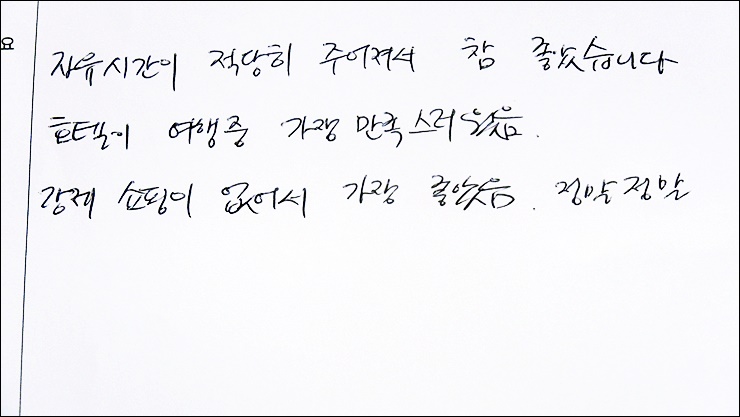 요
자유시간이 적당히 주어져서 참 좋았습니다
호텔이 여행중 가장 만족스러웠음.
강제 쇼핑이 없어서 가장 좋았음. 정말정말